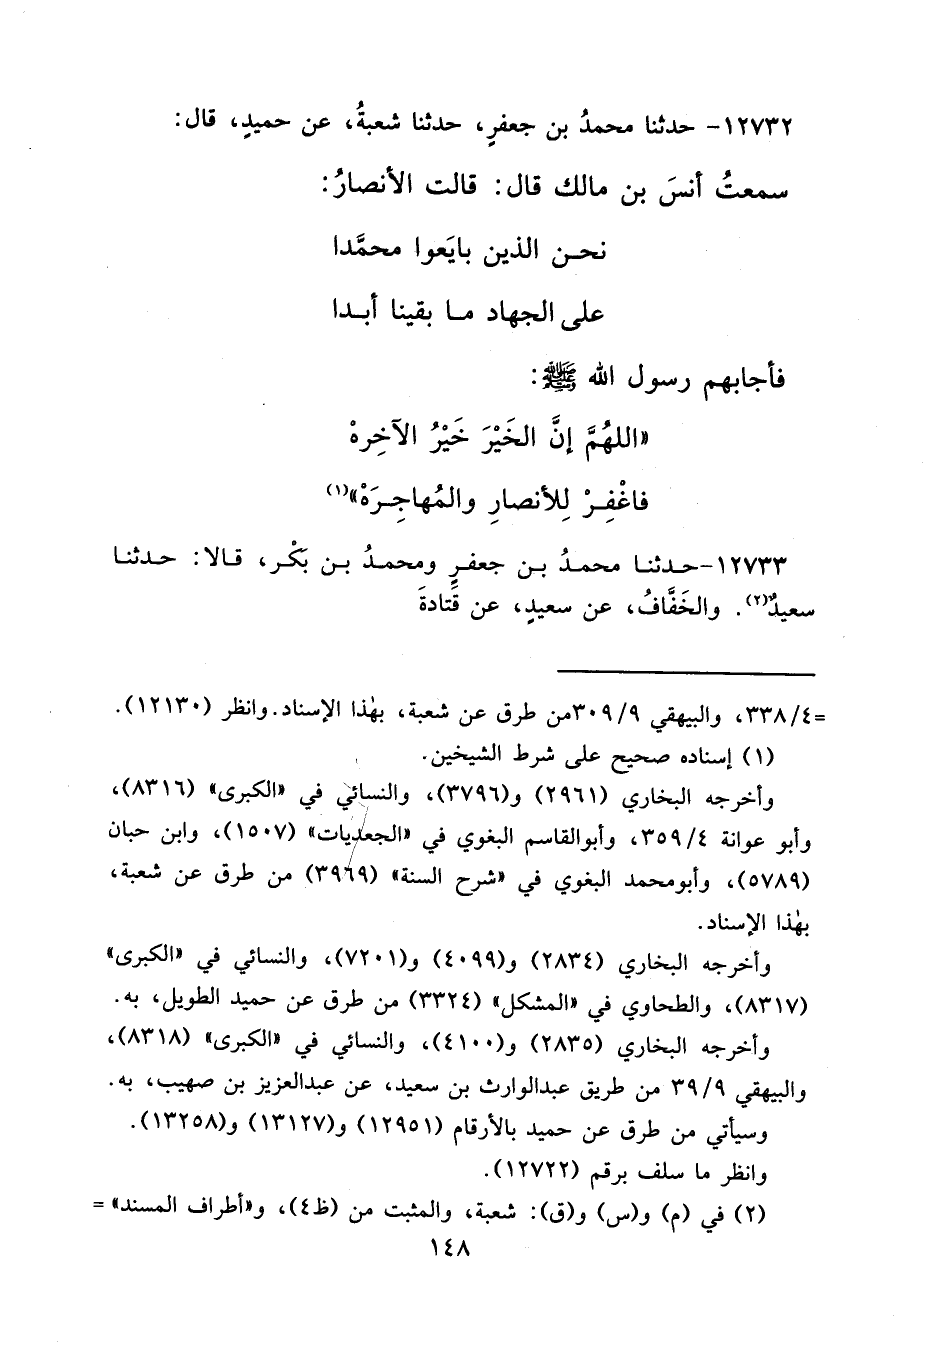 ١٢٧٣٢- حدثنا محمدُ بن جعفرٍ، حدثنا شعبةُ، عن حميدٍ، قال:
سمعتُ أنسَ بن مالك قال: قالت الأنصارُ:
نحـن الذين بايَعوا محمَّدا
على الجهاد مـا بقينا أبـدا
فأجابهم رسول الله ﷺ:
«اللهُمَّ إنَّ الخَيْرَ خَيْرُ الآخِرهْ
فاغْفِـرْ لِلأنصارِ والمُهاجِـرَهْ»(١)
١٢٧٣٣-حـدثنـا محمـدُ بـن جعفـرٍ ومحمـدُ بـن بَكْر، قـالا: حـدثنـا
سعيدٌ(٢). والخَفَّافُ، عن سعيدٍ، عن قَتادةَ
=٣٣٨/٤، والبيهقي ٣٠٩/٩من طرق عن شعبة، بهٰذا الإسناد.وانظر (١٢١٣٠).
(١) إسناده صحيح على شرط الشيخين.
وأخرجه البخاري (٢٩٦١) و(٣٧٩٦)، والنسائي في «الكبرى» (٨٣١٦)،
وأبو عوانة ٣٥٩/٤، وأبوالقاسم البغوي في «الجعديات» (١٥٠٧)، وابن حبان
(٥٧٨٩)، وأبومحمد البغوي في «شرح السنة» (٣٩٦٩) من طرق عن شعبة،
بهٰذا الإسناد.
وأخرجه البخاري (٢٨٣٤) و(٤٠٩٩) و(٧٢٠١)، والنسائي في «الكبرى»
(٨٣١٧)، والطحاوي في «المشكل» (٣٣٢٤) من طرق عن حميد الطويل، به.
وأخرجه البخاري (٢٨٣٥) و(٤١٠٠)، والنسائي في «الكبرى» (٨٣١٨)،
والبيهقي ٣٩/٩ من طريق عبدالوارث بن سعيد، عن عبدالعزيز بن صهيب، به.
وسيأتي من طرق عن حميد بالأرقام (١٢٩٥١) و(١٣١٢٧) و(١٣٢٥٨).
وانظر ما سلف برقم (١٢٧٢٢).
(٢) في (م) و(س) و(ق): شعبة، والمثبت من (ظ٤)، و«أطراف المسند» =
١٤٨